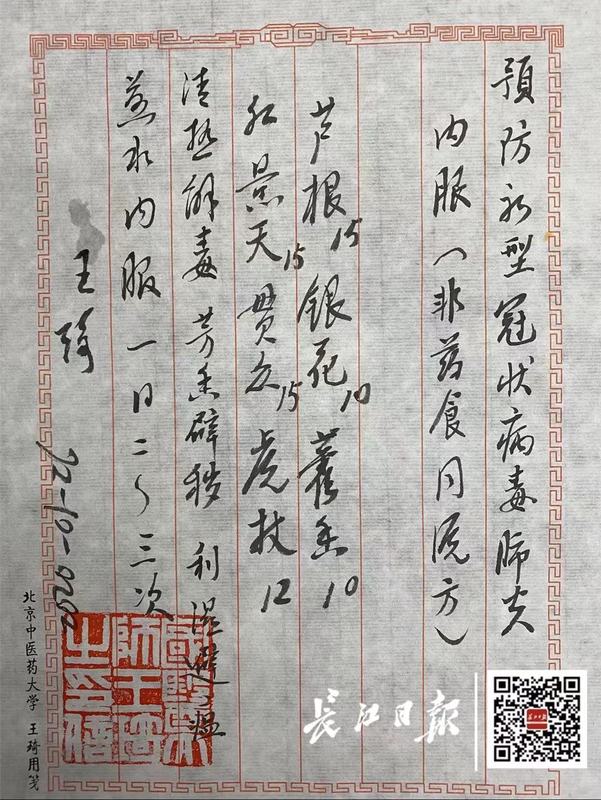 预防新型冠状病毒肺炎
内服（非药食同源方）
芦根15 银花10 藿香10
红景天15 贯众15 虎杖12
清热解毒 芳香辟秽 利湿避瘟
煎水内服 一日二～三次
王琦
2020-01-22
北京中医药大学 王琦用笺
長江日報